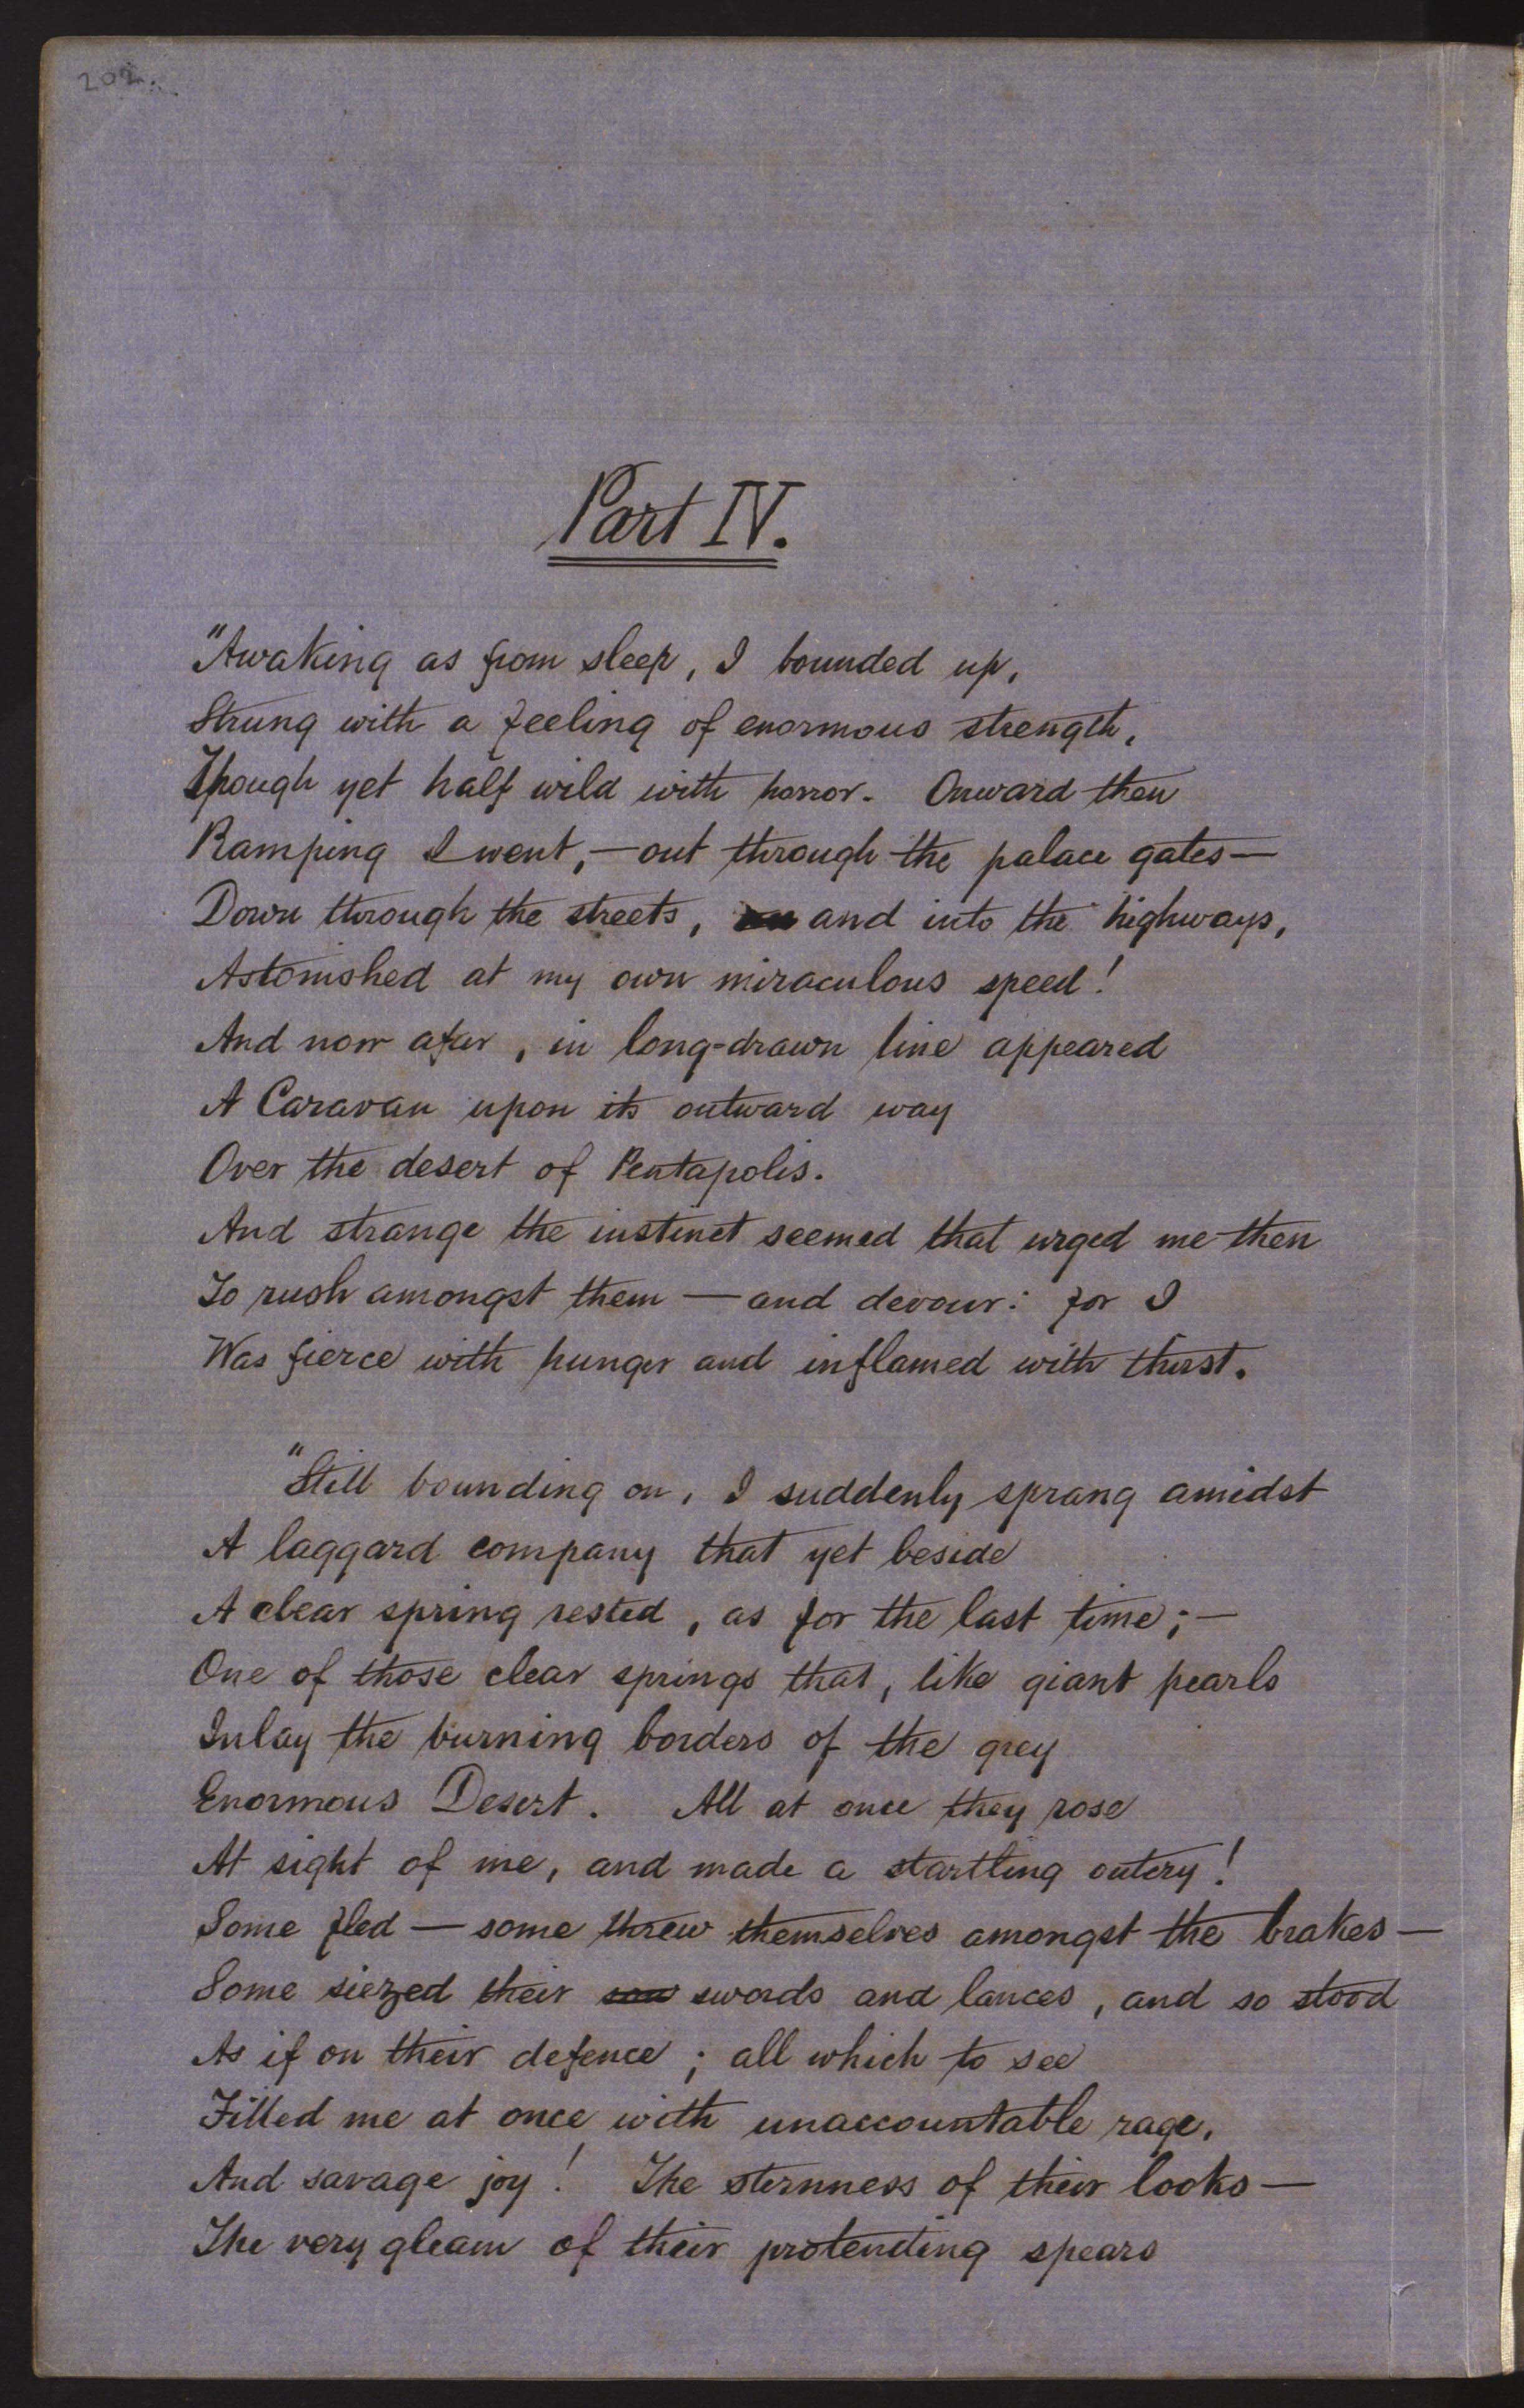 202.
Part IV.
"Awaking as from sleep, I bounded up,
Strung with a feeling of enormous strength,
Though yet half wild with horror. Onward then
Ramping I went,—out through the palace gates—
Down through the streets, and into the highways,
Astonished at my own miraculous speed!
And now afar, in long-drawn line appeared
A Caravan upon its outward way
Over the desert of Pentapolis.
And strange the instinct seemed that urged me then
To rush amongst them — and devour: for I
Was fierce with hunger and inflamed with thirst.
"Still bounding on, I suddenly sprang amidst
A laggard company that yet beside
A clear spring rested, as for the last time;—
One of those clear springs that, like giant pearls
Inlay the burning borders of the grey
Enormous Desert. All at once they rose
At sight of me, and made a startling outcry!
Some fled — some threw themselves amongst the brakes—
Some siezed their swords and lances, and so stood
As if on their defence; all which to see
Filled me at once with unaccountable rage,
And savage joy! The sternness of their looks—
The very gleam of their protending spears